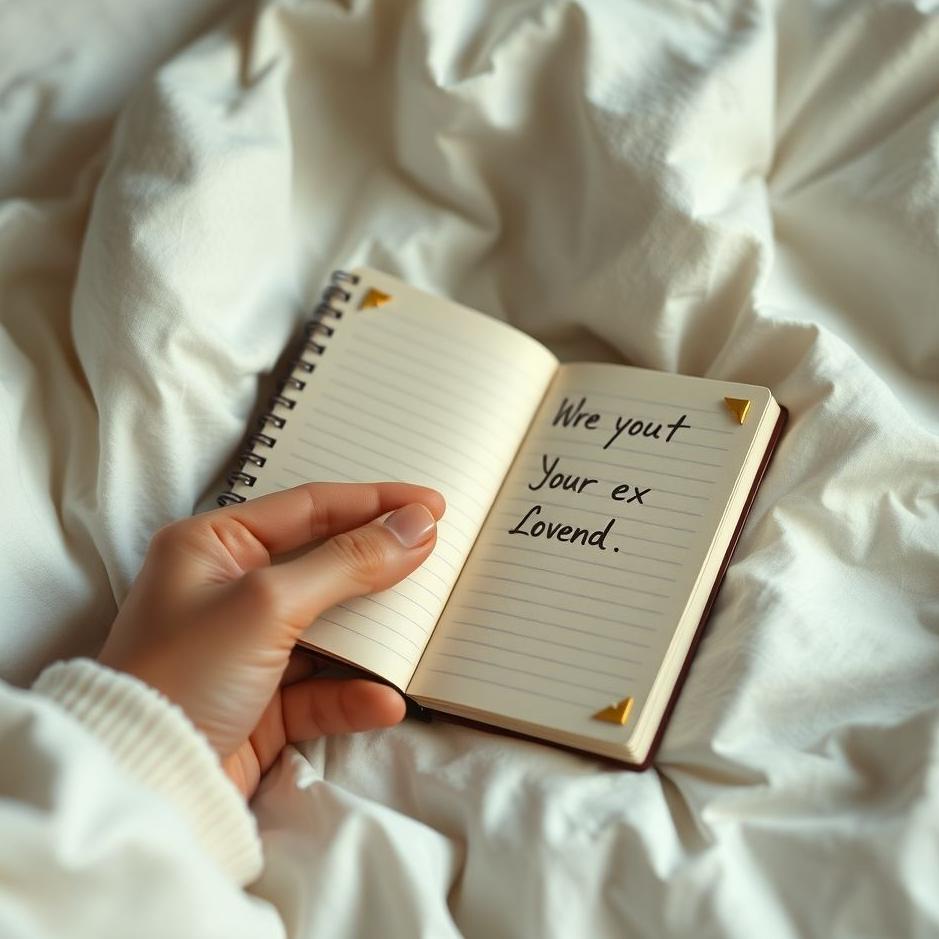 Wre yout
Your ex
Lovend.